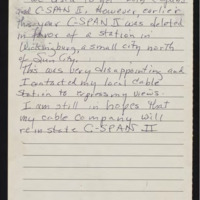 and C-SPAN II. However, earlier
this year C-SPAN II was deleted
in favor of a station in
Wickenburg, a small city north
of Sun City.
This was very disappointing and
I contacted my local cable
station to express my views.
I am still in hopes that
my cable company will
reinstate C-SPAN II